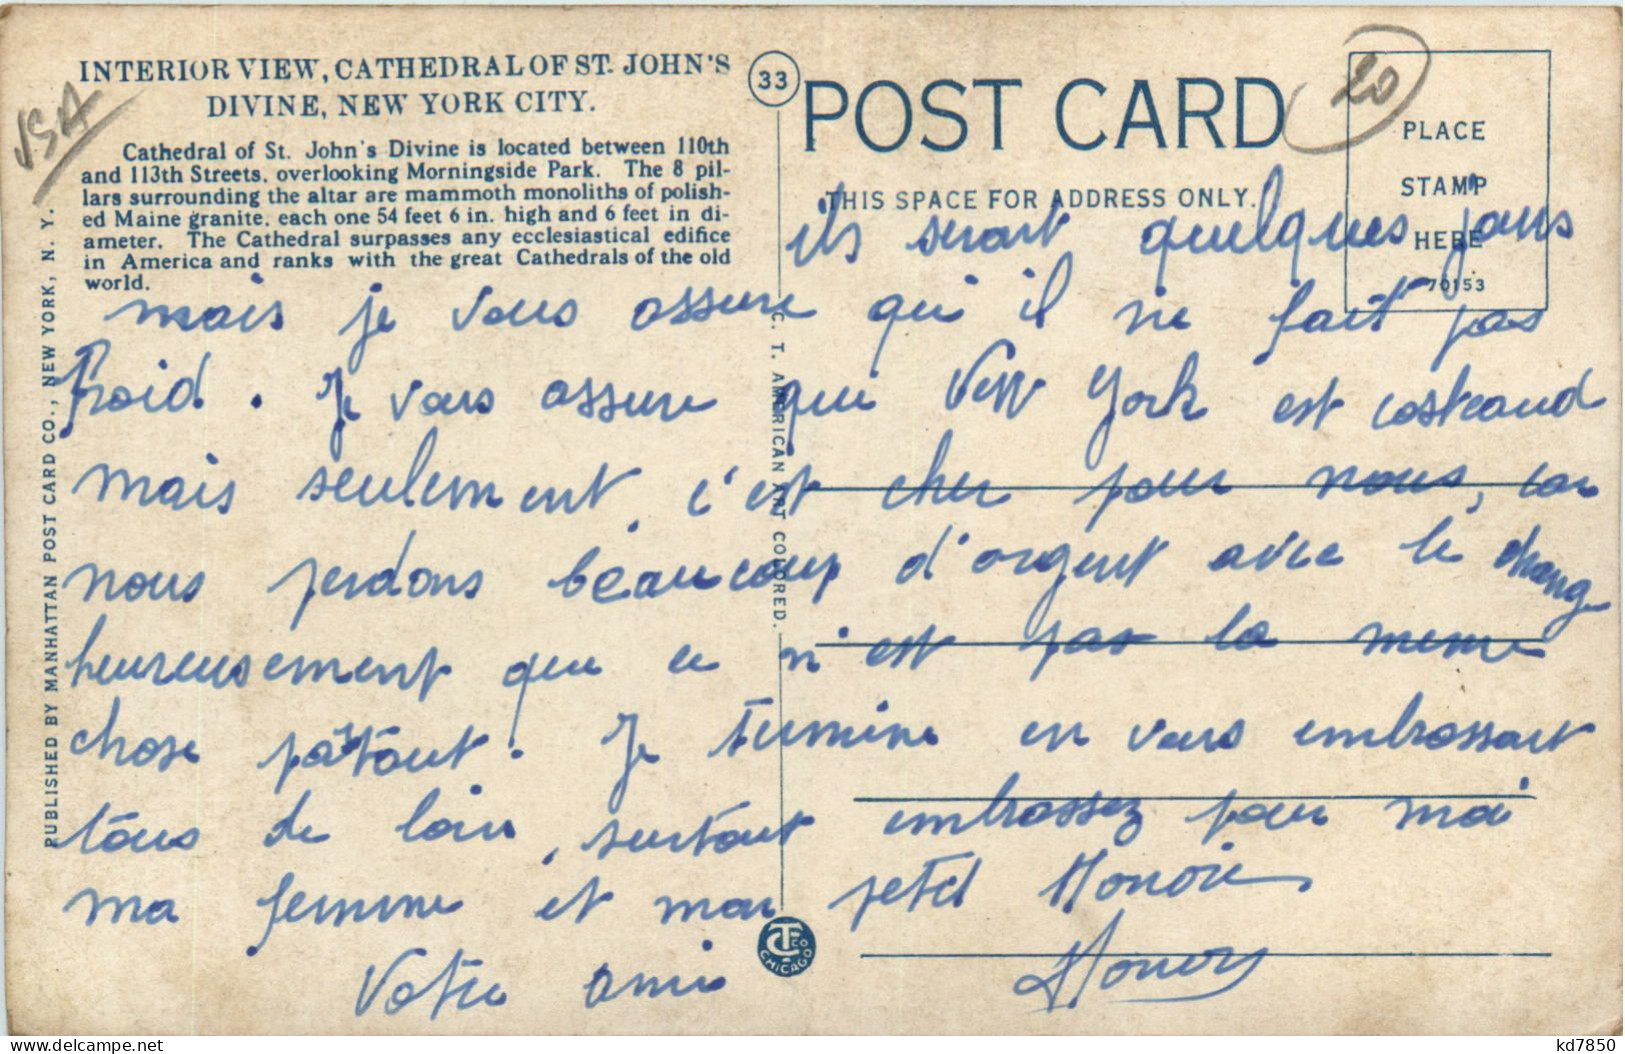 INTERIOR VIEW, CATHEDRAL OF ST. JOHN'S
DIVINE, NEW YORK CITY.
Cathedral of St. John's Divine is located between 110th
and 113th Streets, overlooking Morningside Park. The 8 pil-
lars surrounding the altar are mammoth monoliths of polish-
ed Maine granite, each one 54 feet 6 in. high and 6 feet in di-
ameter. The Cathedral surpasses any ecclesiastical edifice
in America and ranks with the great Cathedrals of the old
world.
USA
33
POST CARD
20
PLACE
STAMP
HERE
70153
THIS SPACE FOR ADDRESS ONLY.
PUBLISHED BY MANHATTAN POST CARD CO., NEW YORK, N. Y.
C. T. AMERICAN ART COLORED.
ils serait quelques jours
mais je vous assure qui il ne fait pas
froid. Je vous assure que New York est
mais seulement, c'est cher pour nous, car
nous perdons beaucoup d'argent avec le chang
heureusement que ce n'est pas la meme
chose partout. Je termine en vous embrassant
tous de loin, surtout embrassez pour moi
ma femme et mon petit Honoré
Votre ami Honoré
CT CO
CHICAGO
kd7850
delcampe.net